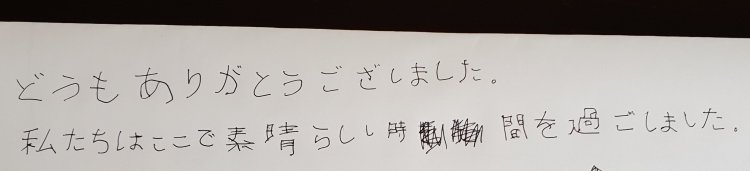 どうもありがとうございしました。
私たちはここで素晴らしい時間を過ごしました。